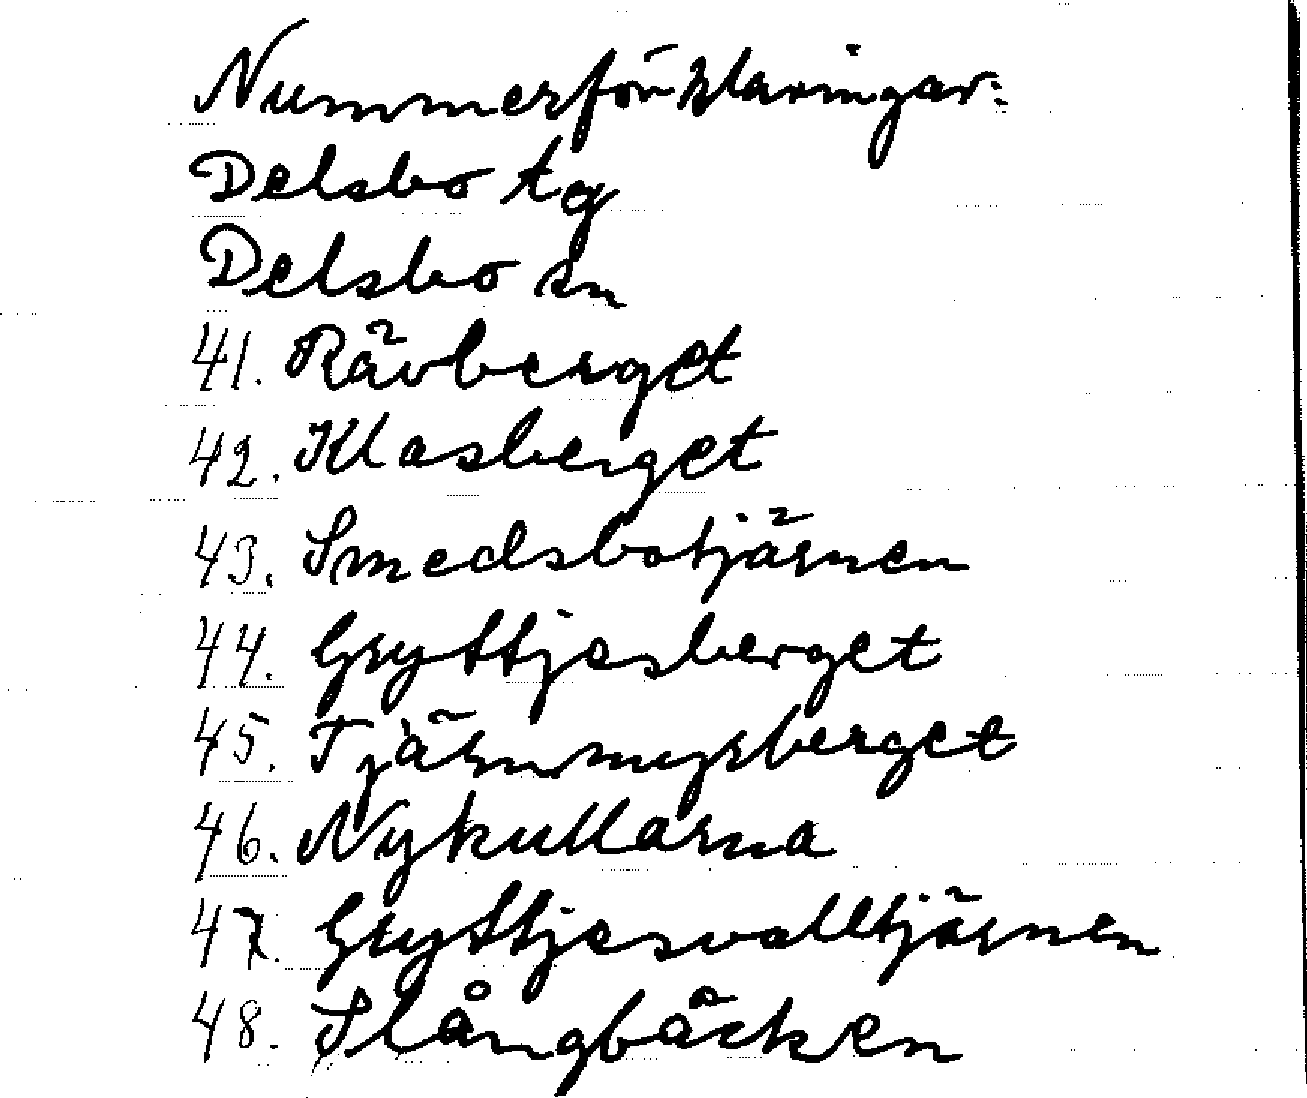 Nummerförklaringar:
Delsbo tg
Delsbo sn
41. Rävberget
42. Klasberget
43. Smedsbotjärnen
44. Gryttjesberget
45. Tjärnmyrberget
46. Nykullarna
47. Gryttjesvalltjärnen
48. Slångbäcken